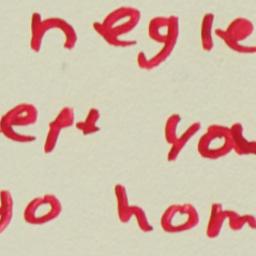 negle
ept you
go hom